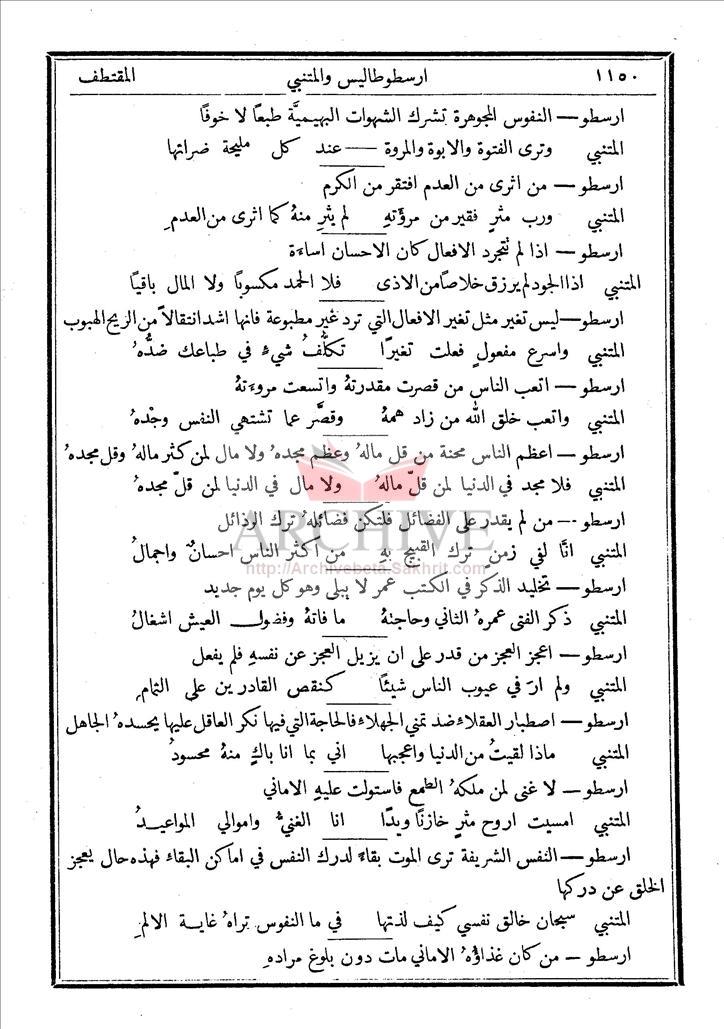 ١١٥٠ ارسطوطاليس والمتنبي المقتطف
ارسطو — النفوس المجوهرة تشرك الشهوات البهيميَّة طبعًا لا خوفًا
المتنبي وترى الفتوة والابوة والمروة — عند كل مليحة ضراتها
ارسطو — من اثرى من العدم افتقر من الكرم
المتنبي ورب مثرٍ فقير من مروَّتهِ لم يثرِ منهُ كما اثرى من العدمِ
ارسطو — اذا لم تتجرد الافعال كان الاحسان اساءة
المتنبي اذا الجود لم يرزق خلاصًا من الاذى فلا الحمد مكسوبًا ولا المال باقيًا
ارسطو — ليس تغير مثل تغير الافعال التي ترد غير مطبوعة فانها اشد انتقالاً من الريح الهبوب
المتنبي واسرع مفعولٍ فعلت تغيرًا تكلُّفُ شيءٍ في طباعك ضدُّهُ
ارسطو — اتعب الناس من قصرت مقدرتهُ واتسعت مروءتهُ
المتنبي واتعب خلق الله من زاد همهُ وقصَّر عما تشتهي النفس وجْدهُ
ارسطو — اعظم الناس محنة من قل مالهُ وعظم مجدهُ ولا مال لمن كثر مالهُ وقل مجدهُ
المتنبي فلا مجد في الدنيا لمن قلَّ مالهُ ولا مال في الدنيا لمن قلَّ مجدهُ
ارسطو — من لم يقدر على الفضائل فلتكن فضائلهُ ترك الرذائل
المتنبي انَّا لفي زمنٍ ترك القبيح بهِ من اكثر الناس احسانٌ واجمالُ
ARCHIVE
http://Archivebeta.Sakhrit.com
ارسطو — تخليد الذكر في الكتب عمر لا يبلى وهو كل يوم جديد
المتنبي ذكر الفتى عمرهُ الثاني وحاجتهُ ما فاتهُ وفضول العيش اشغالُ
ارسطو — اعجز العجز من قدر على ان يزيل العجز عن نفسهِ فلم يفعل
المتنبي ولم ارَ في عيوب الناس شيئًا كنقص القادرين على التمامِ
ارسطو — اصطبار العقلاء ضد تمني الجهلاء فالحاجة التي فيها نكر العاقل عليها يحسدهُ الجاهل
المتنبي ماذا لقيتُ من الدنيا واعجبها اني بما انا باكٍ منهُ محسودُ
ارسطو — لا غنى لمن ملكهُ الطمع فاستولت عليهِ الاماني
المتنبي امسيت اروح مثرٍ خازنًا ويدًا انا الغنيُّ واموالي المواعيدُ
ارسطو — النفس الشريفة ترى الموت بقاءً لدرك النفس في اماكن البقاء فهذه حال يعجز
الخلق عن دركها
المتنبي سبحان خالق نفسي كيف لذتها في ما النفوس تراهُ غاية الالمِ
ارسطو — من كان غذاؤهُ الاماني مات دون بلوغ مرادهِ